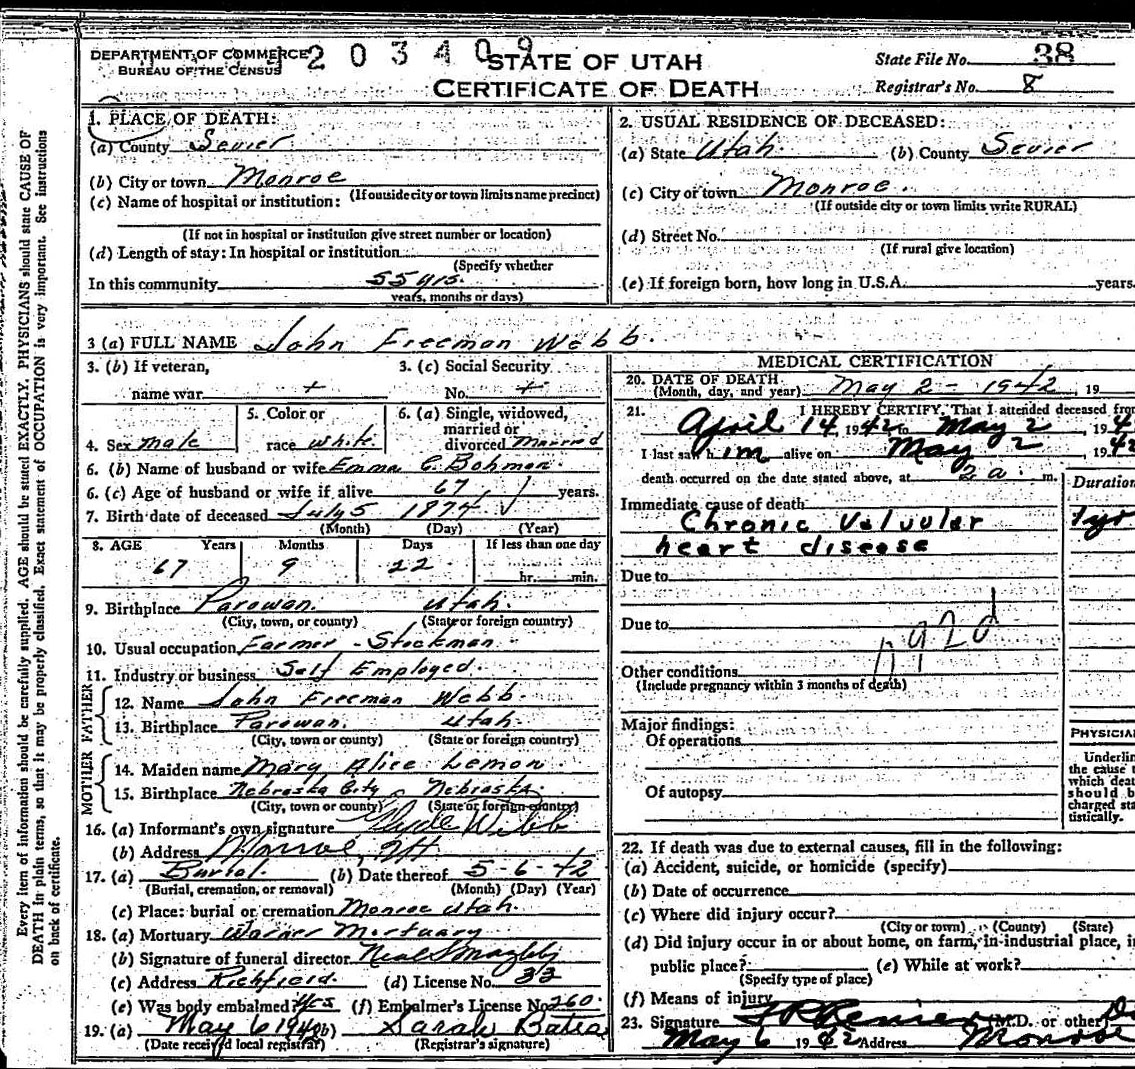 DEPARTMENT OF COMMERCE
BUREAU OF THE CENSUS
203409
STATE OF UTAH
CERTIFICATE OF DEATH
State File No. 38
Registrar's No. 8
Every item of information should be carefully supplied. AGE should be stated EXACTLY. PHYSICIANS should state CAUSE OF
DEATH in plain terms, so that it may be properly classified. Exact statement of OCCUPATION is very important. See instructions
on back of certificate.
1. PLACE OF DEATH:
(a) County Sevier
(b) City or town Monroe
(If outside city or town limits name precinct)
(c) Name of hospital or institution:
(If not in hospital or institution give street number or location)
(d) Length of stay: In hospital or institution
(Specify whether
In this community 55 yrs.
years, months or days)
2. USUAL RESIDENCE OF DECEASED:
(a) State Utah (b) County Sevier
(c) City or town Monroe.
(If outside city or town limits write RURAL)
(d) Street No.
(If rural give location)
(e) If foreign born, how long in U.S.A. years.
3 (a) FULL NAME John Freeman Webb.
3. (b) If veteran,
name war +
3. (c) Social Security
No. +
4. Sex male
5. Color or
race White.
6. (a) Single, widowed,
married or
divorced Married
6. (b) Name of husband or wife Emma C. Bohman.
6. (c) Age of husband or wife if alive 67 years.
7. Birth date of deceased July 5 1874
(Month) (Day) (Year)
8. AGE Years Months Days If less than one day
67 9 22 hr. min.
9. Birthplace Parowan. Utah.
(City, town, or county) (State or foreign country)
10. Usual occupation Farmer - Stockman
11. Industry or business Self Employed.
FATHER
12. Name John Freeman Webb.
13. Birthplace Parowan. Utah.
(City, town or county) (State or foreign country)
MOTHER
14. Maiden name Mary Alice Lemon.
15. Birthplace Nebraska City Nebraska
(City, town or county) (State or foreign country)
16. (a) Informant's own signature Clyde Webb
(b) Address Monroe, Ut
17. (a) Burial. (b) Date thereof 5-6-42
(Burial, cremation, or removal) (Month) (Day) (Year)
(c) Place: burial or cremation Monroe Utah.
18. (a) Mortuary Warner Mortuary
(b) Signature of funeral director Neal
(c) Address Richfield. (d) License No. 33
(e) Was body embalmed? Yes (f) Embalmer's License No. 260.
19. (a) May 6 1942 (b) Sarah Bates
(Date received local registrar) (Registrar's signature)
MEDICAL CERTIFICATION
20. DATE OF DEATH
(Month, day, and year) May 2 - 1942, 19
21. I HEREBY CERTIFY, That I attended deceased from
April 14, 1942 to May 2 194
I last saw him alive on May 2 1942
death occurred on the date stated above, at 2 a. m.
Duration
Immediate cause of death
Chronic Valvular 1 yr
heart disease
Due to
Due to
92d
Other conditions
(Include pregnancy within 3 months of death)
Major findings:
Of operations
Of autopsy
PHYSICIA
Underlin
the cause t
which deat
should b
charged sta
tistically.
22. If death was due to external causes, fill in the following:
(a) Accident, suicide, or homicide (specify)
(b) Date of occurrence
(c) Where did injury occur?
(City or town) (County) (State)
(d) Did injury occur in or about home, on farm, in industrial place, i
public place? (e) While at work?
(Specify type of place)
(f) Means of injury
23. Signature (M.D. or other)
May 6 1942 Address Monroe